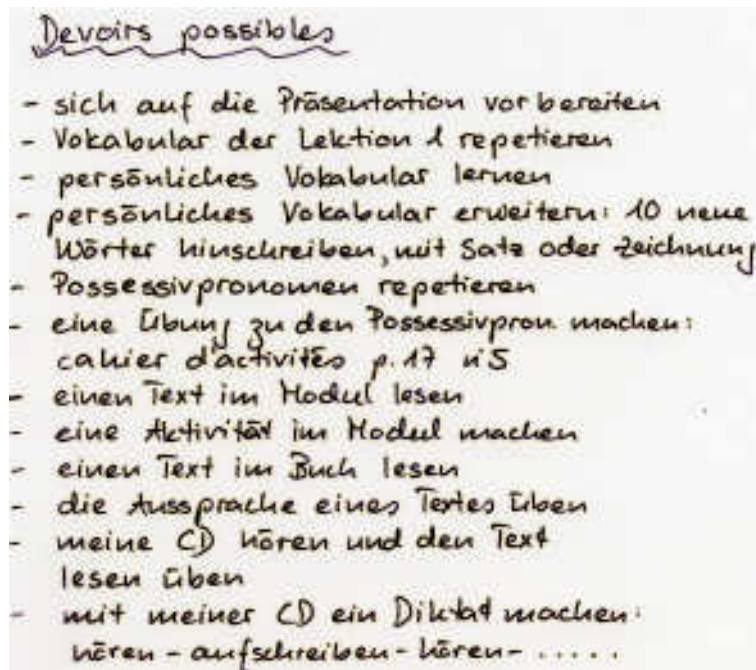 Devoirs possibles
- sich auf die Präsentation vorbereiten
- Vokabular der Lektion 1 repetieren
- persönliches Vokabular lernen
- persönliches Vokabular erweitern: 10 neue
Wörter hinschreiben, mit Satz oder Zeichnung
- Possessivpronomen repetieren
- eine Übung zu den Possessivpron. machen:
cahier d'activités p. 17 n°5
- einen Text im Modul lesen
- eine Aktivität im Modul machen
- einen Text im Buch lesen
- die Aussprache eines Textes üben
- meine CD hören und den Text
lesen üben
- mit meiner CD ein Diktat machen:
hören - aufschreiben - hören - .....